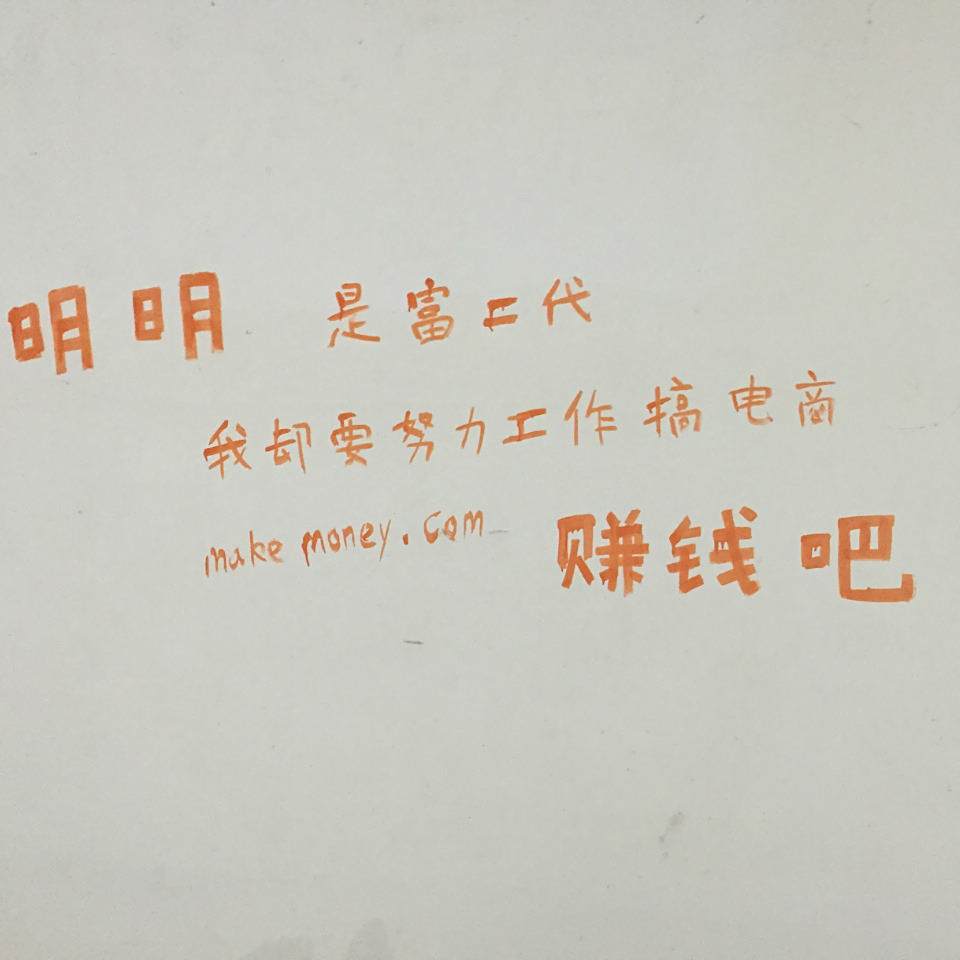 明明是富二代
我却要努力工作搞电商
make money.com 赚钱吧